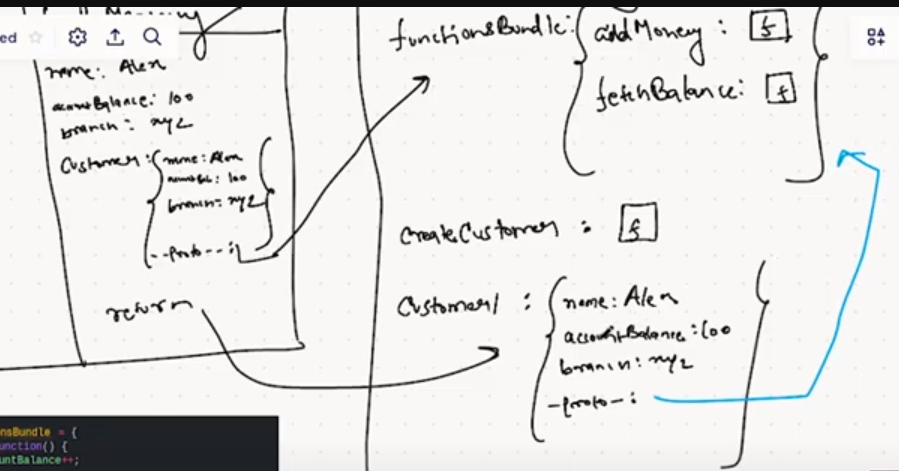 ed
name: Alex
accountBalance: 100
branch: xyz
Customer: { name: Alex
accountBal: 100
branch: xyz }
--proto--:
return
functionsBundle: { addMoney : f
fetchBalance: f }
createCustomer : f
Customer1 : { name: Alex
accountBalance: 100
branch: xyz
-proto-: }
nsBundle = {
unction() {
untBalance++;